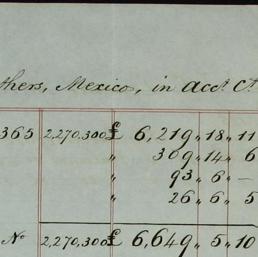 thers, Mexico, in Acct. Ct
365 2,270,300 £ 6,219 " 18 " 11
" 309 " 14 " 6
" 93 " 6 " —
" 26 " 6 " 5
No 2,270,300 £ 6,649 " 5 " 10